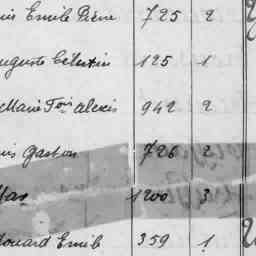 Emile Pierre 725 2
Auguste Célestin 125 1
Marie Fois Alexis 942 2
Gaston 726 2
Max 1200 3
Edouard Emile 359 1